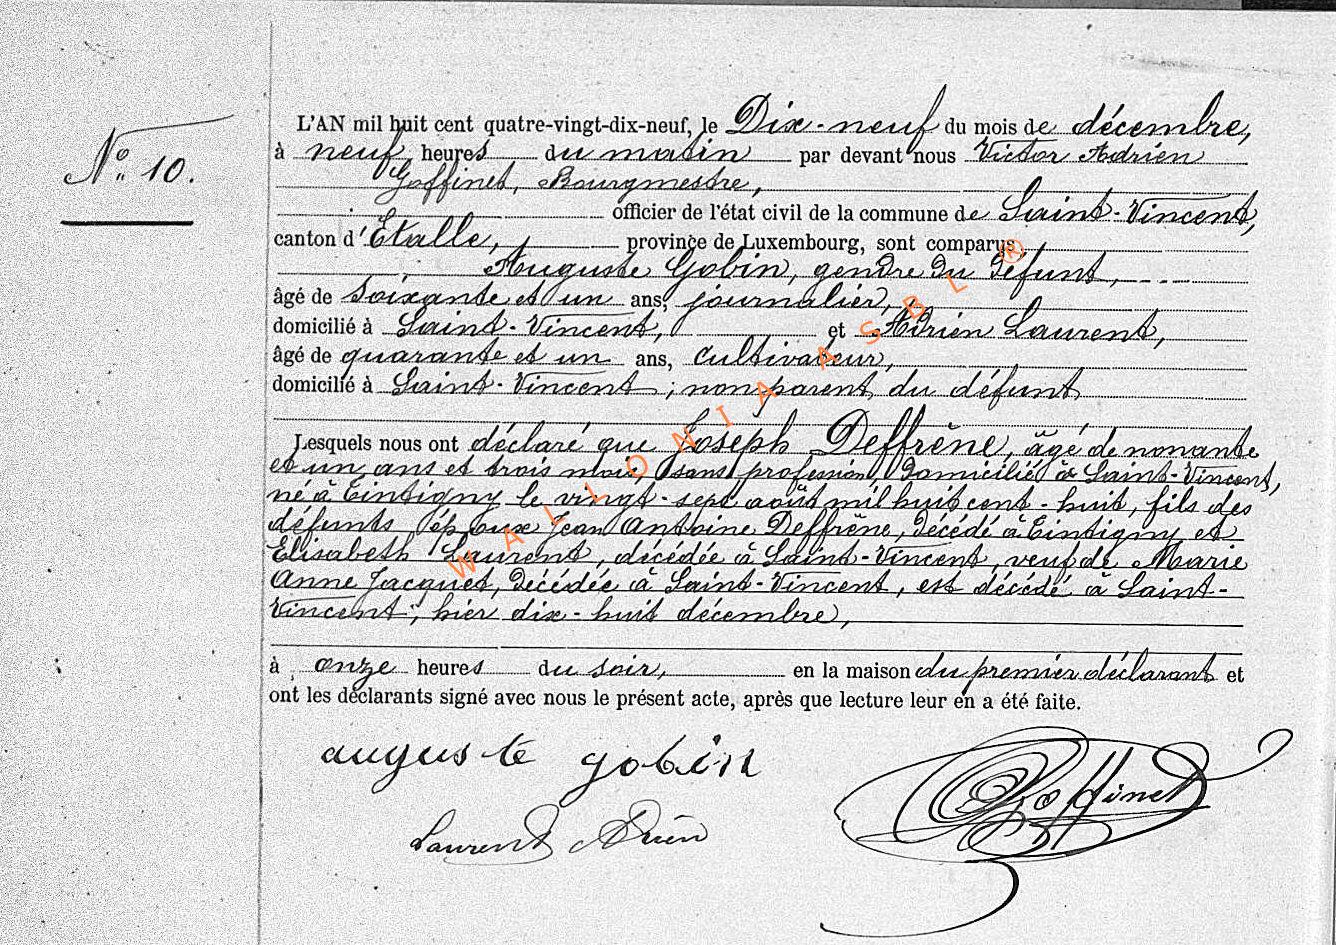 N° 10.
L'AN mil huit cent quatre-vingt-dix-neuf, le Dix-neuf du mois de décembre,
à neuf heures du matin par devant nous Victor Adrien
Goffinet, Bourgmestre,
officier de l'état civil de la commune de Saint-Vincent,
canton d'Etalle, province de Luxembourg, sont comparus
Auguste Gobin, gendre du défunt,
âgé de soixante et un ans, journalier,
domicilié à Saint-Vincent, et Adrien Laurent,
âgé de quarante et un ans, cultivateur,
domicilié à Saint-Vincent ; non parent du défunt
Lesquels nous ont déclaré que Joseph Deffrène, âgé de nonante
et un ans et trois mois, sans profession, domicilié à Saint-Vincent,
né à Tintigny le vingt-sept août mil huit cent-huit, fils des
défunts époux Jean Antoine Deffrène, décédé à Tintigny et
Elisabeth Laurent, décédée à Saint-Vincent, veuf de Marie
Anne Jacquet, décédée à Saint-Vincent, est décédé à Saint-
Vincent, hier dix-huit décembre,
à onze heures du soir, en la maison du premier déclarant et
ont les déclarants signé avec nous le présent acte, après que lecture leur en a été faite.
auguste gobin
Goffinet
Laurent Adrien
WALLONIA ASBL ®